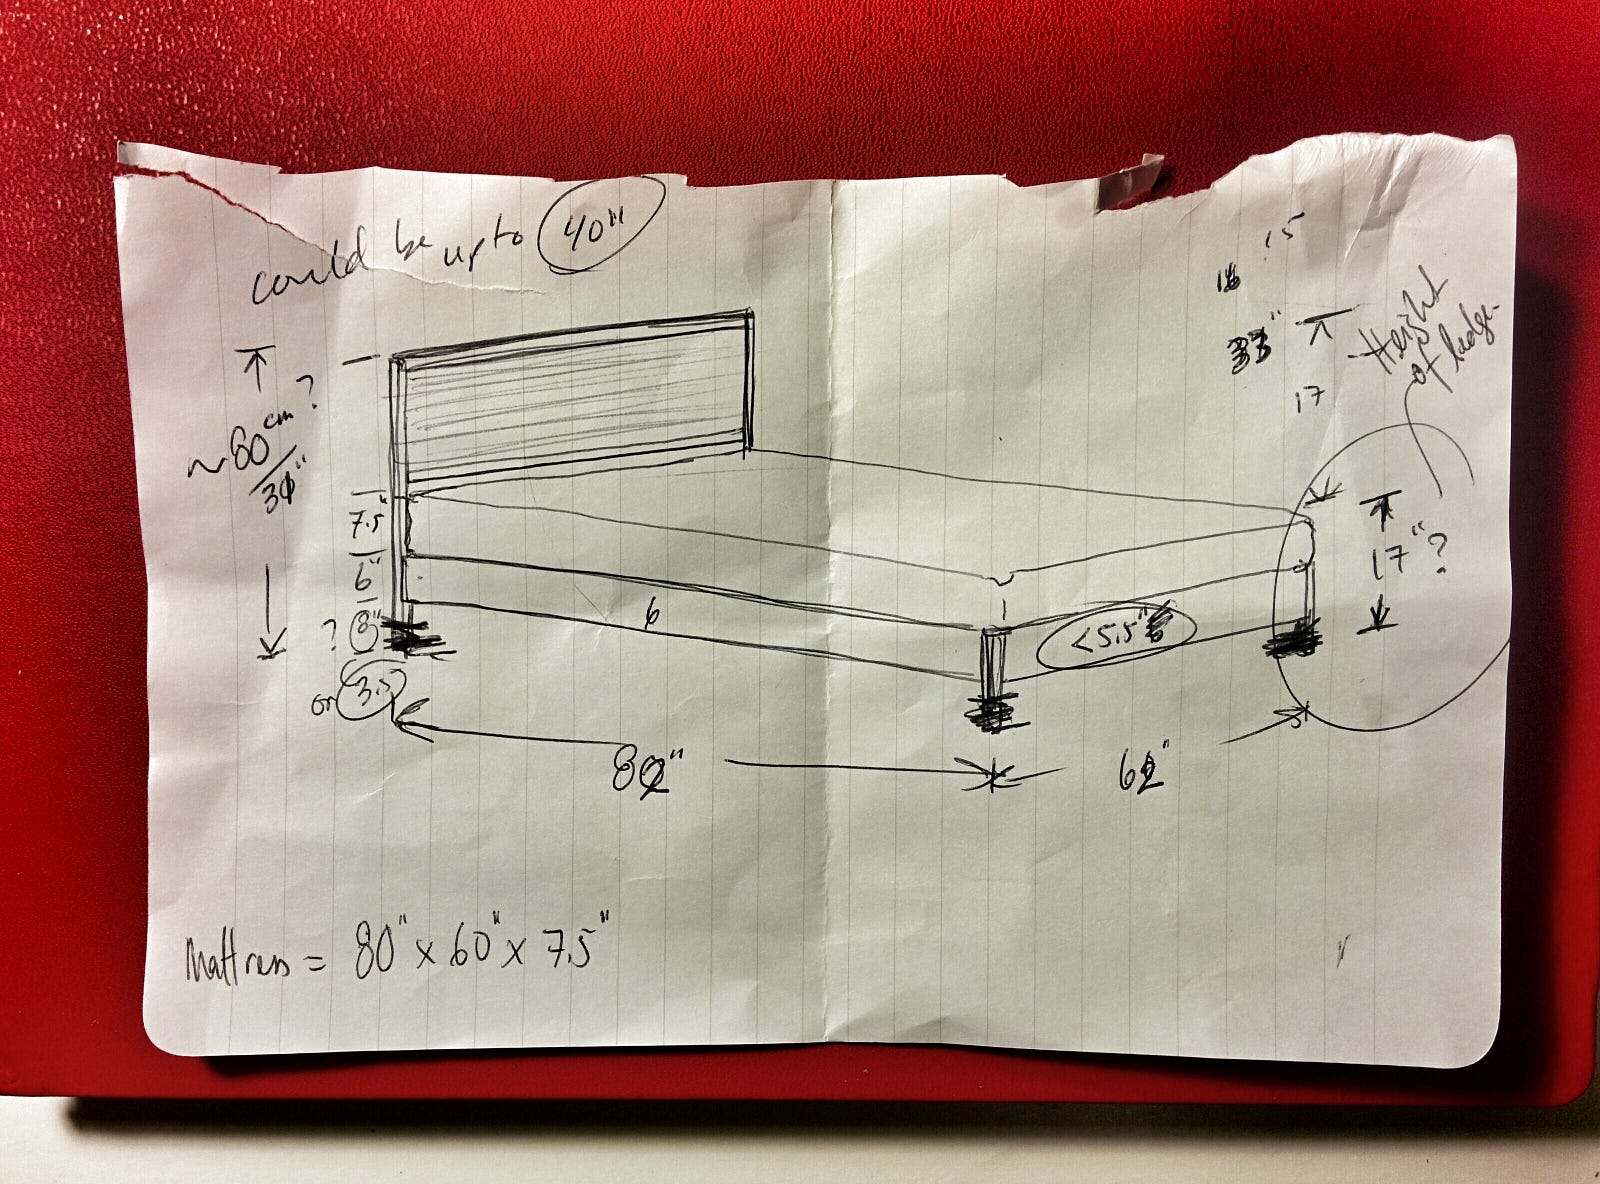 could be up to 40"
15
16
17
Height
of ledge.
~80cm?
30"
7.5"
6"
? 8"
or 3.5
6
<5.5"
17"?
82"
62"
Mattress = 80" x 60" x 7.5"